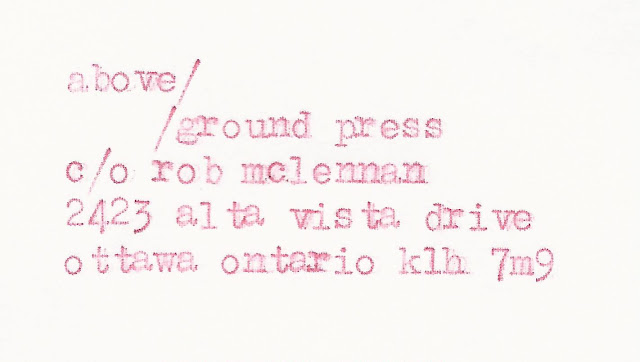 above/
/ground press
c/o rob mclennan
2423 alta vista drive
ottawa ontario k1h 7m9